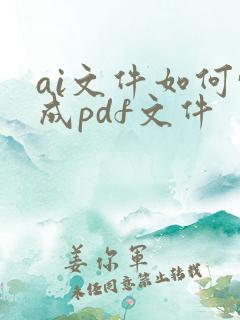 ai文件如何
成pdf文件
姜你军
未经同意禁止转载